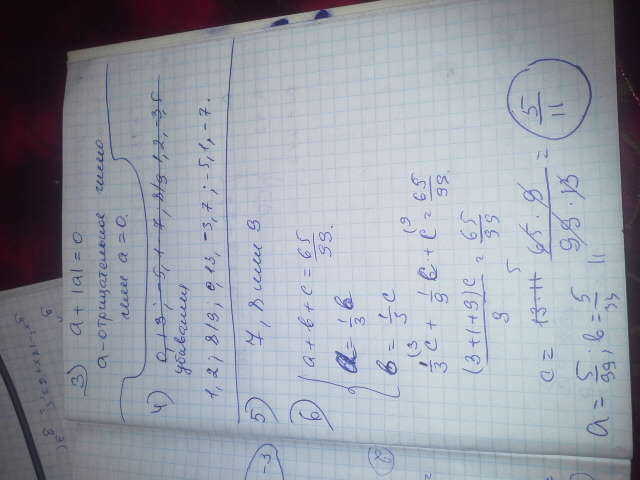 3) a + |a| = 0
a - отрицательное число
или a = 0.
4) 0,13; -5,1 -7, 8/9 1,2, -3,5
убывания
1,2; 8/9; 0,13, -3,7; -5,1, -7.
5) 7, 8 или 9
6) a + b + c = 65/99.
a = 1/3 b
b = 1/3 c
1/3 c + 1/9 c + c = 65/99.
(3+1+9)c / 9 = 65/99
c = 13·11 65·9 / 99·13 = 5/11
a = 5/99; b = 5/33 11
-3